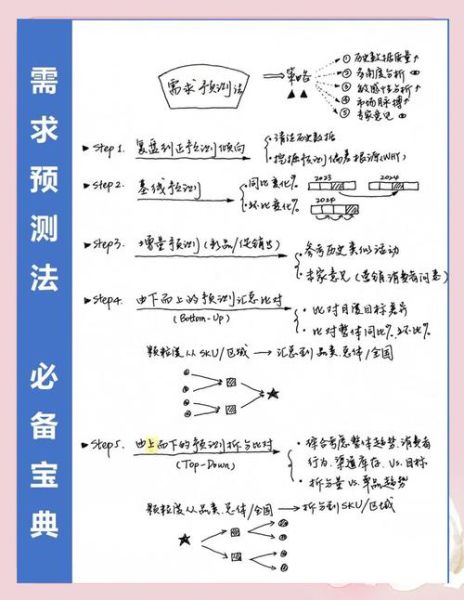 需求预测法 必备宝典
需求预测法
策略
① 历史数据质量↑
② 多角度分析
③ 敏感性分析↑
④ 市场脉搏↑
⑤ 专家意见
Step 1. 复盘纠正预测倾向
• 清洁历史数据
• 挖掘预测偏差根源(WHY)
Step 2. 基线预测
• 同比变化%
2023 2024
• 环比变化%
2024
Step3. 增量预测(新品/促销等)
• 参考历史类似活动
• 专家意见(营销.消费者问卷)
Step4. 由下而上的预测汇总比对
(Bottom-Up)
• 比对月度目标差异
• 比对整体同比%.环比%
颗粒度从SKU/区域 → 汇总到品类.总体/全国
Step5. 由上而下的预测拆分比对
(Top-Down)
• 综合考虑整体趋势.消费者
行为.渠道库存.Vs.目标
• 拆分量vs.单品趋势
颗粒度从品类.总体/全国 → 拆分到SKU/区域